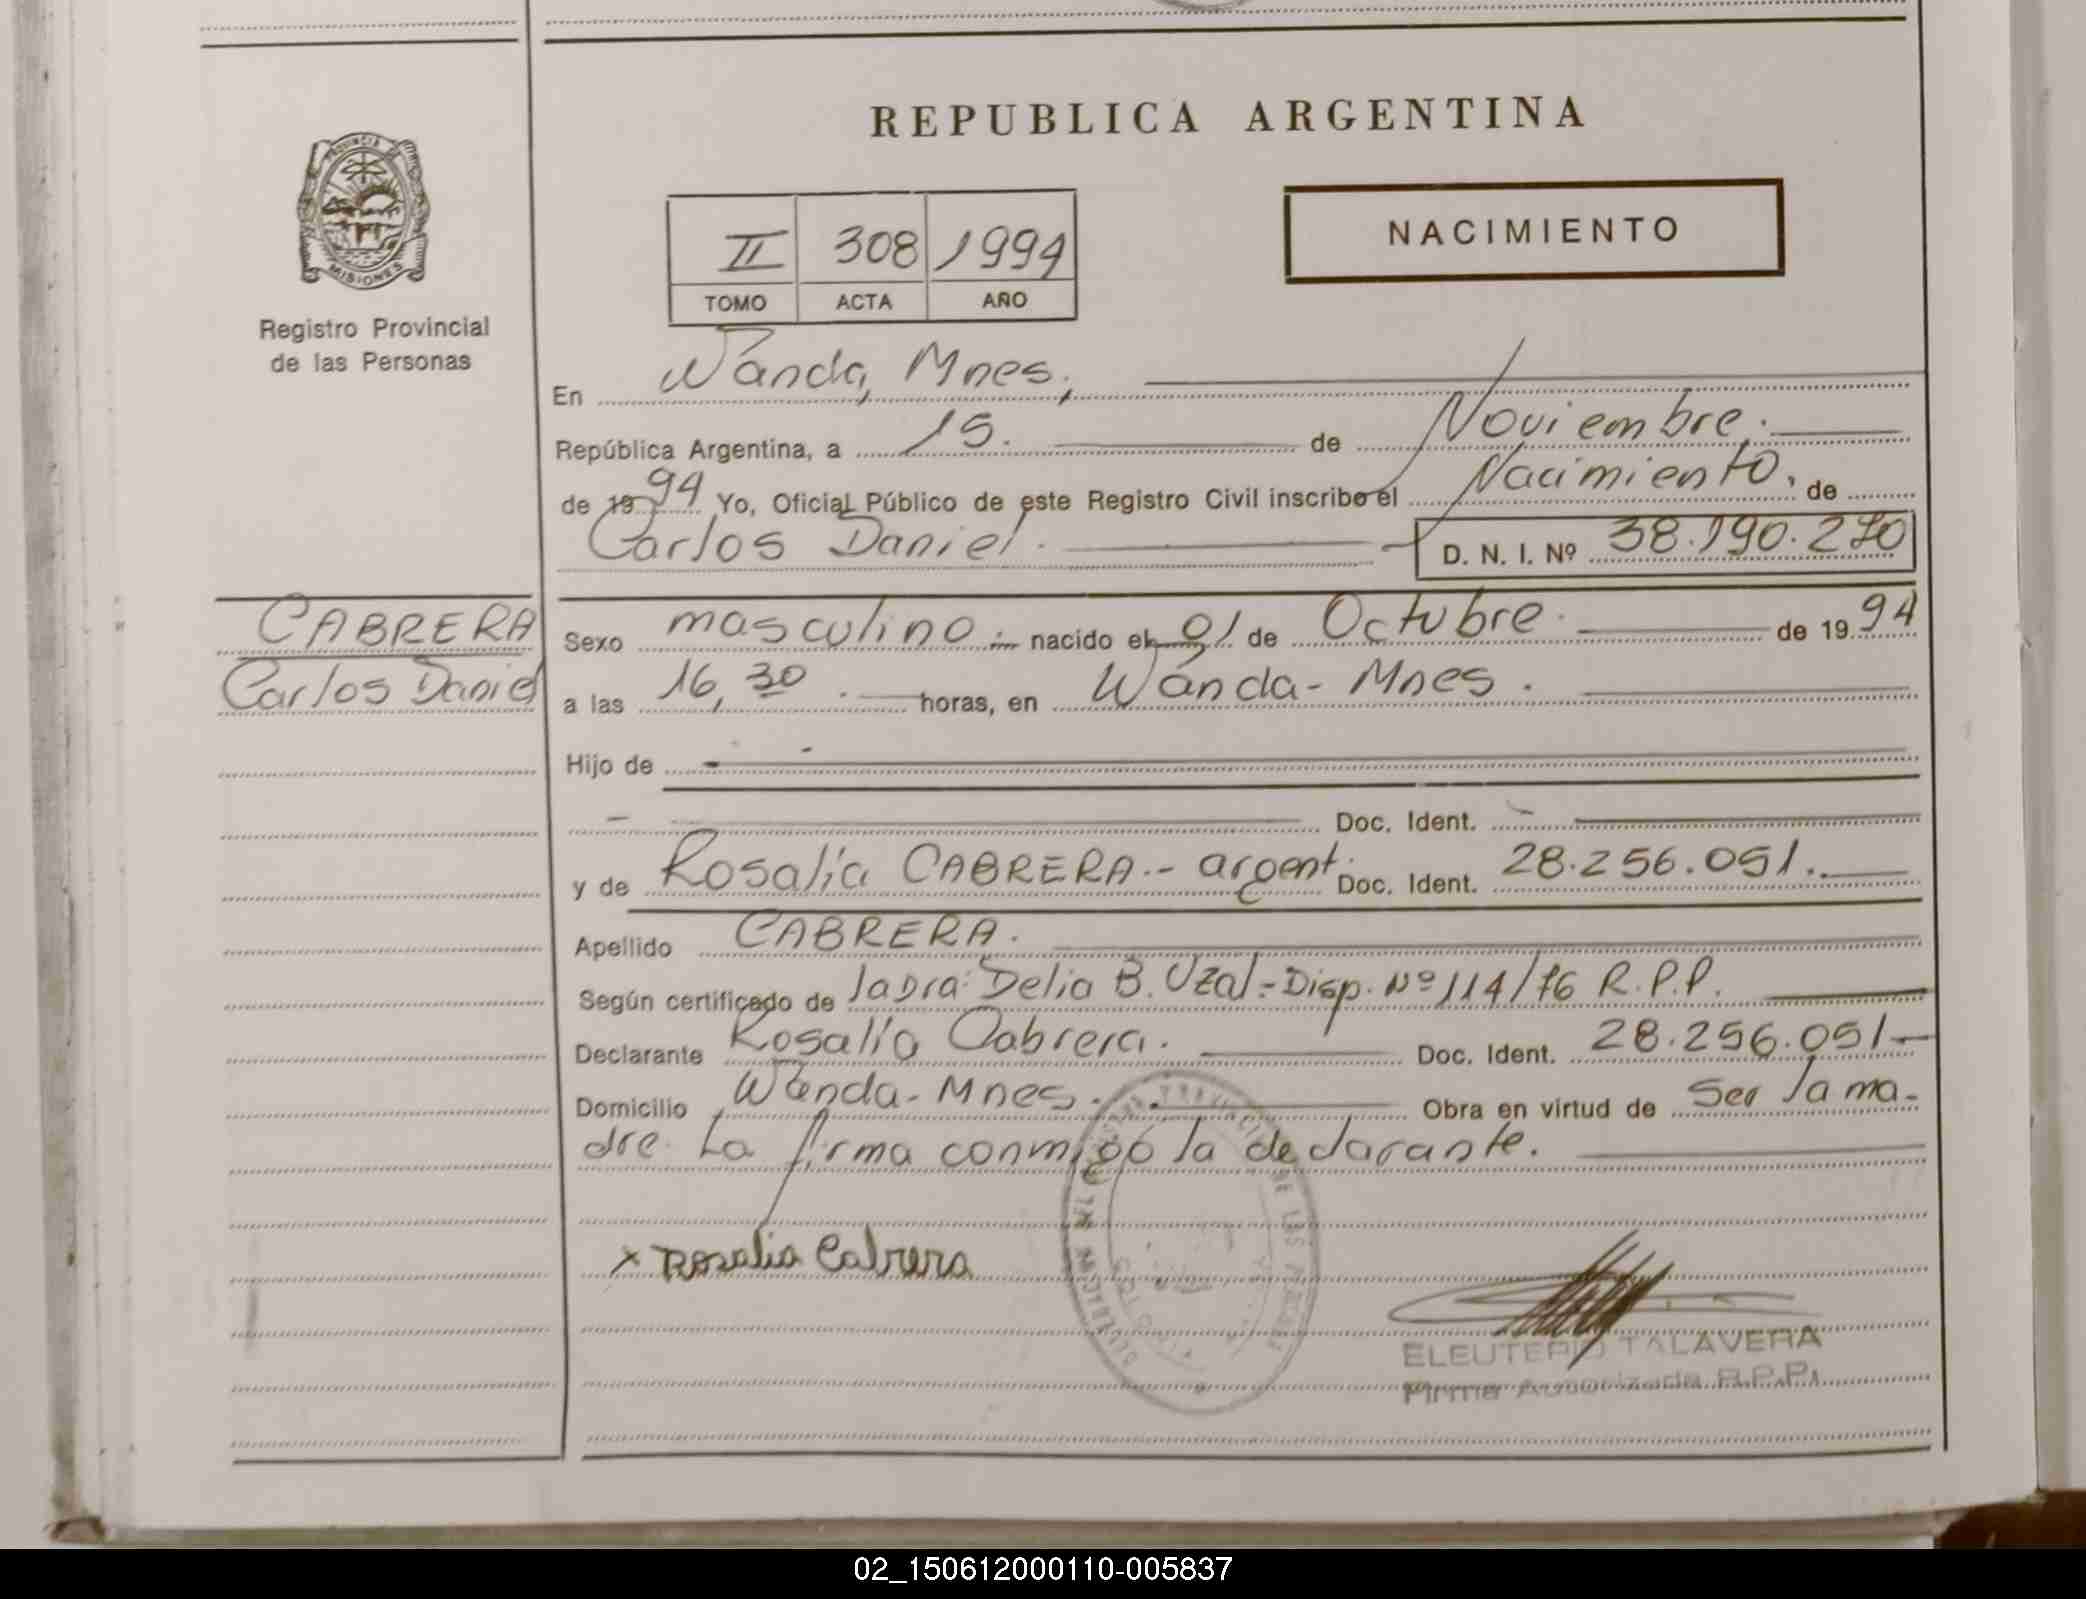 REPUBLICA ARGENTINA
PROVINCIA DE
MISIONES
Registro Provincial
de las Personas
II 308 1994
TOMO ACTA AÑO
NACIMIENTO
En Wanda, Mnes.,
República Argentina, a 15. de Noviembre.
de 1994 Yo, Oficial Público de este Registro Civil inscribo el Nacimiento. de
Carlos Daniel. D. N. I. Nº 38.190.270
CABRERA
Carlos Daniel
Sexo masculino.- nacido el 01 de Octubre. de 1994
a las 16,30. horas, en Wanda- Mnes.
Hijo de
Doc. Ident.
y de Rosalia CABRERA.- argent. Doc. Ident. 28.256.051.
Apellido CABRERA.
Según certificado de la Dra. Delia B. Uzal.- Disp. Nº 114/76 R.P.P.
Declarante Rosalia Cabrera. Doc. Ident. 28.256.051-
Domicilio Wanda- Mnes. Obra en virtud de ser la ma-
dre. La firma conmigo la declarante.
x Rosalia Cabrera
ELEUTERIO TALAVERA
Firma Autorizada R.P.P.
02_150612000110-005837